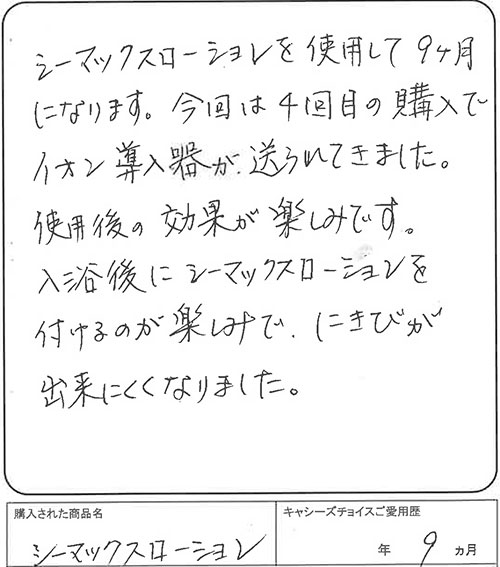 シーマックスローションを使用して9ヶ月
になります。今回は4回目の購入で
イオン導入器が送られてきました。
使用後の効果が楽しみです。
入浴後にシーマックスローションを
付けるのが楽しみで、にきびが
出来にくくなりました。
購入された商品名
シーマックスローション
キャシーズチョイスご愛用歴
年 9 ヵ月